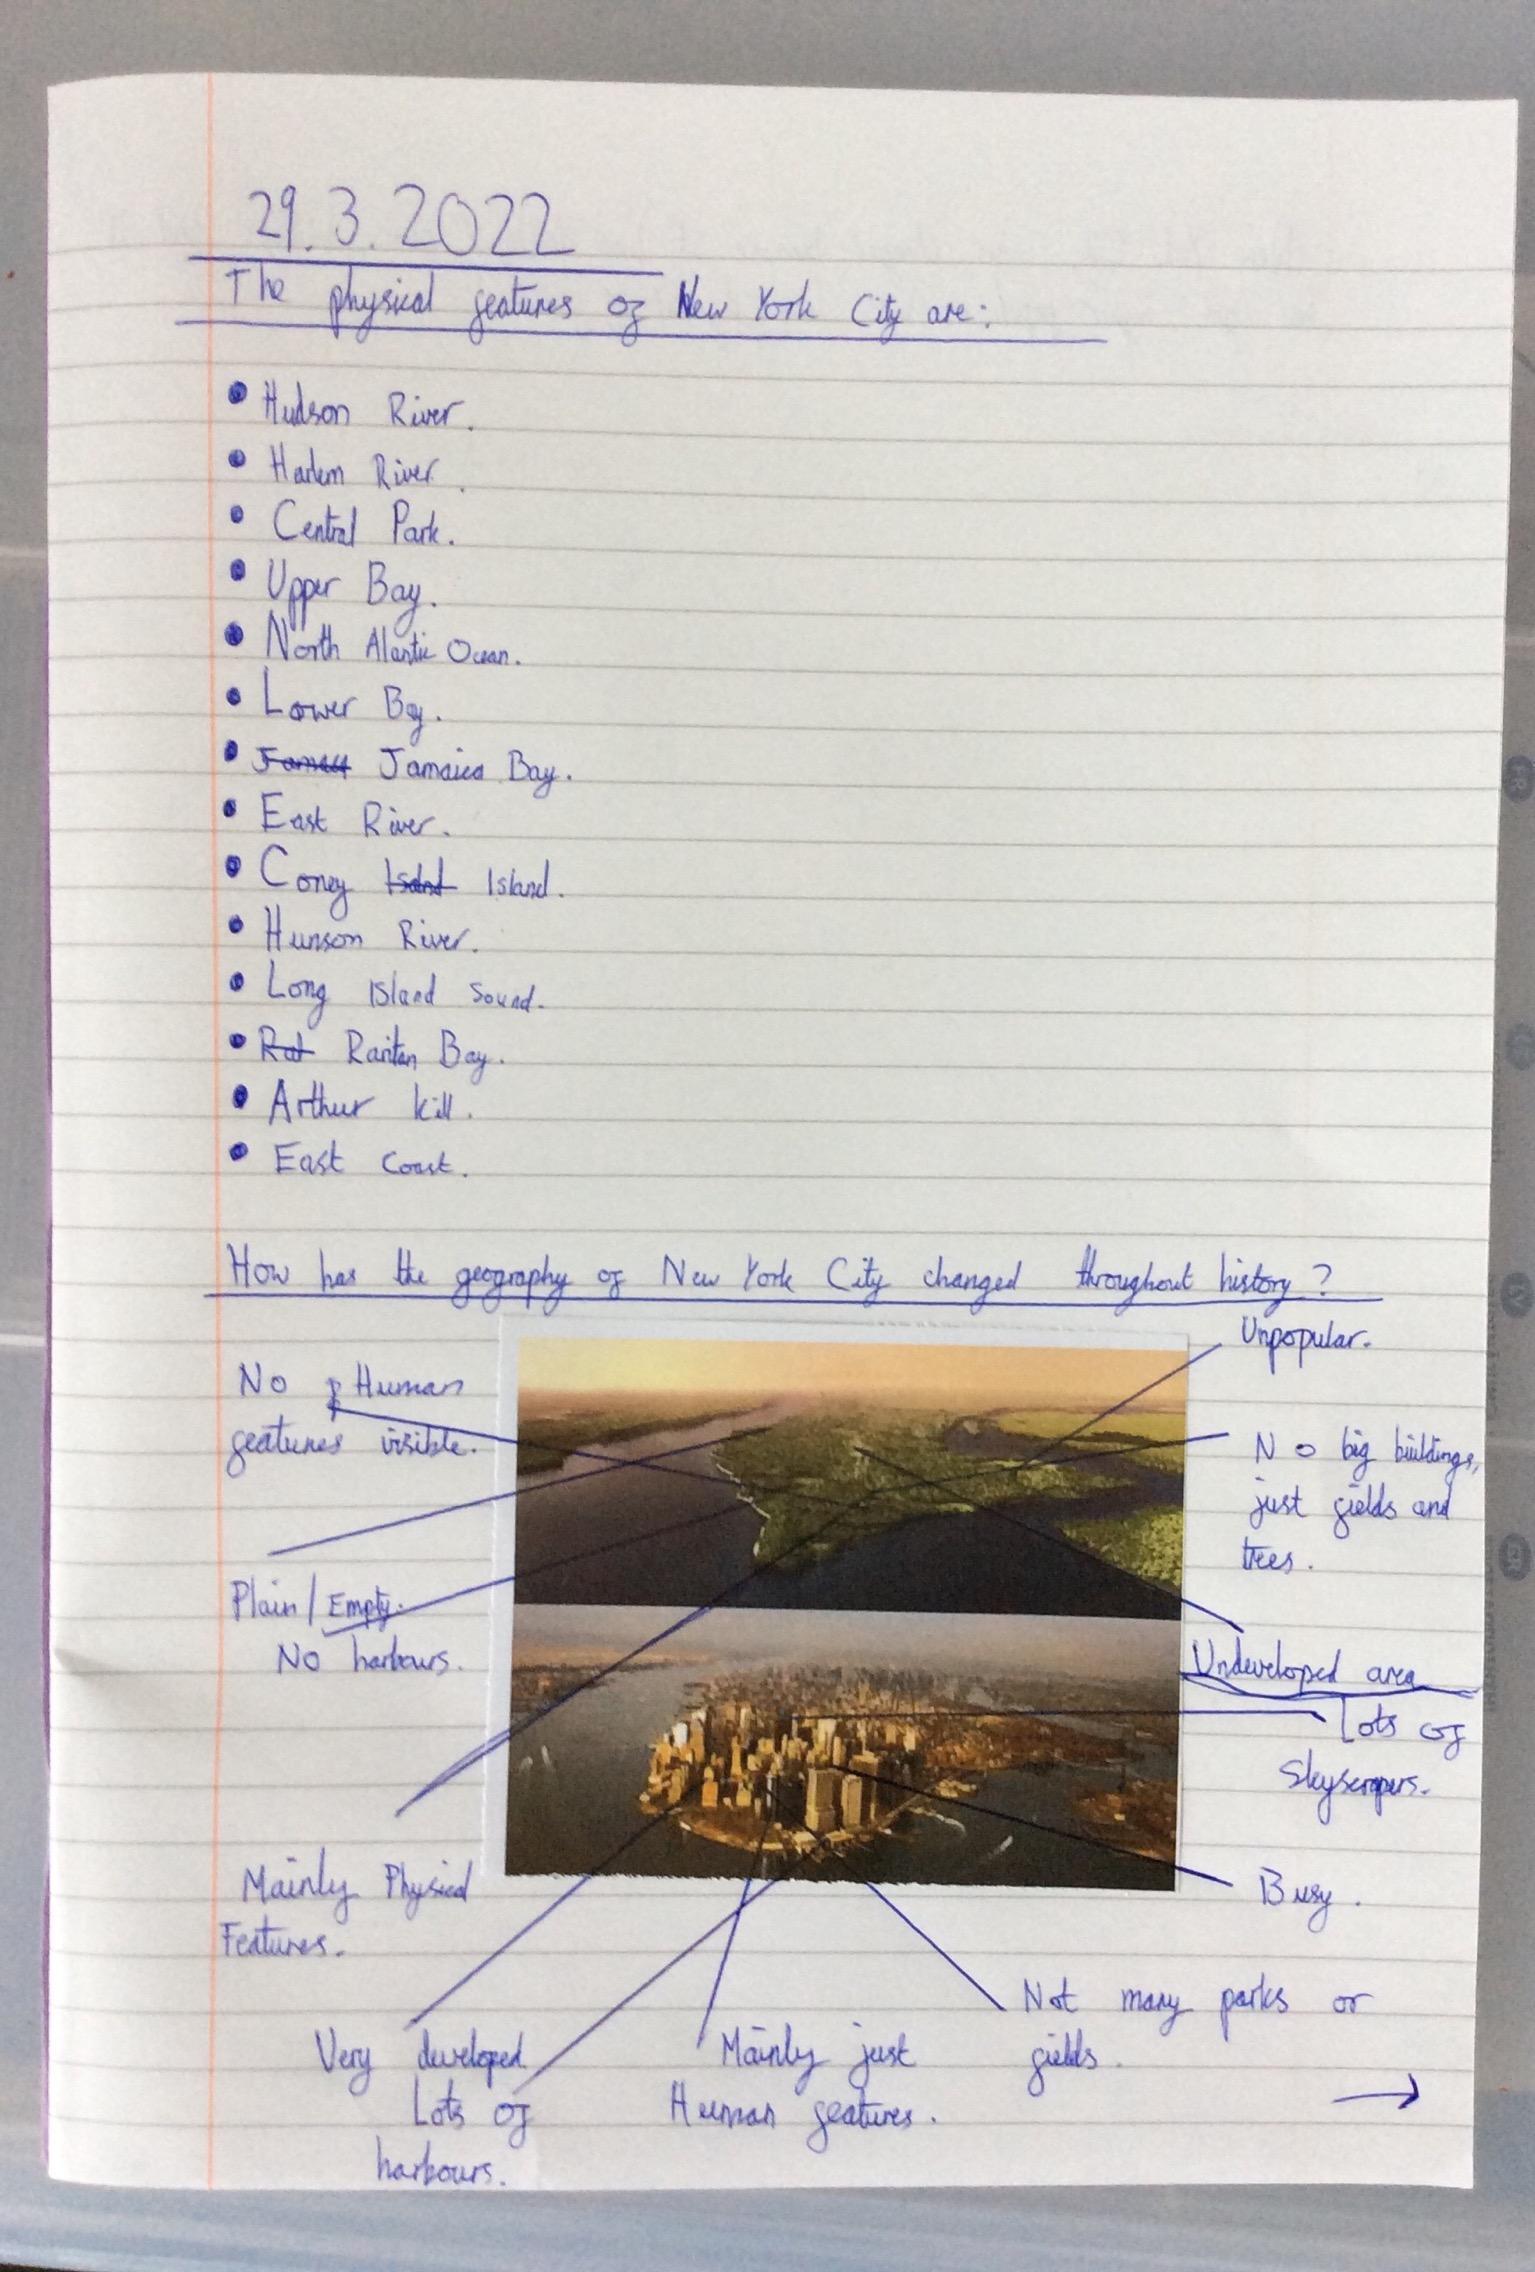 29.3.2022
The physical features of New York City are:
• Hudson River.
• Harlem River.
• Central Park.
• Upper Bay.
• North Alantic Ocean.
• Lower Bay.
• Jamaica Bay.
• East River.
• Coney Island.
• Hunson River.
• Long Island Sound.
• Rat Raritan Bay.
• Arthur kill.
• East coast.
How has the geography of New York City changed throughout history?
Unpopular.
No Human
features visible.
No big buildings,
just fields and
trees.
Plain/Empty.
No harbours.
Undeveloped area
Lots of
Skyscrapers.
Mainly Physical
Features.
Busy.
Not many parks or
fields.
Very developed.
Lots of
harbours.
Mainly just
Human features.
→